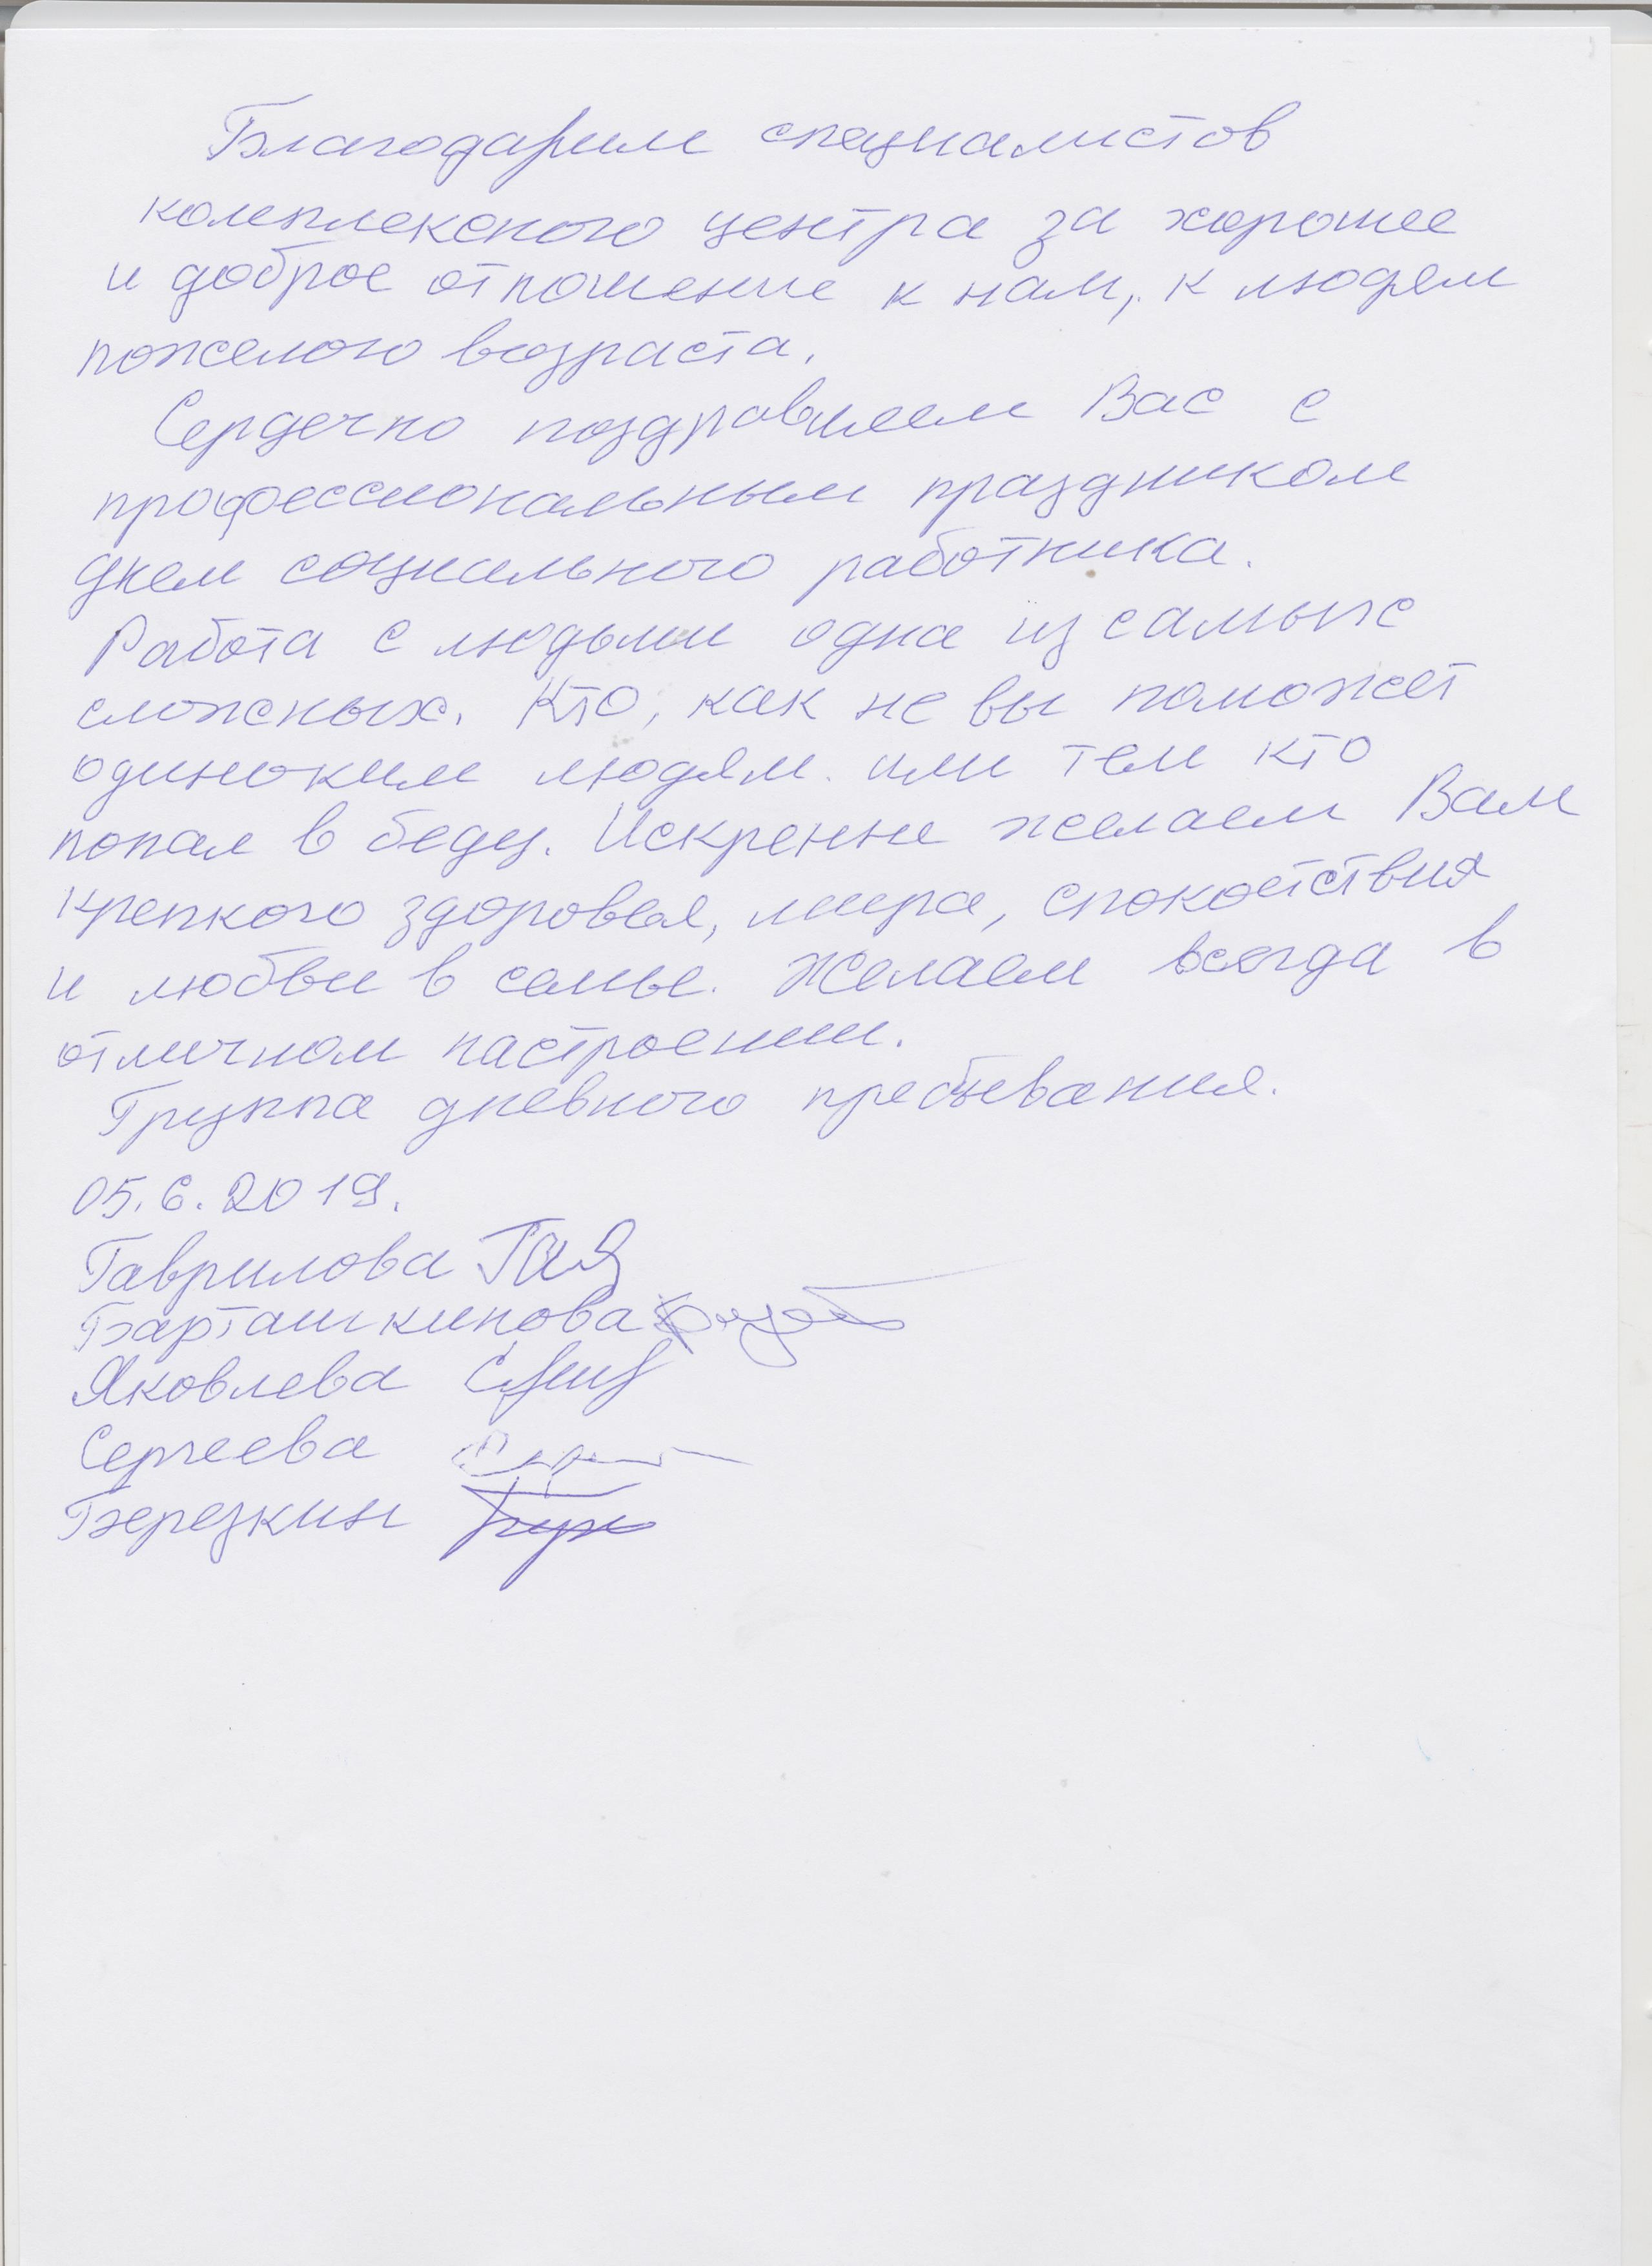 Благодарим специалистов
комплексного центра за хорошее
и доброе отношение к нам, к людям
пожелого возраста.
Сердечно поздравляем Вас с
профессиональным праздником
днем социального работника.
Работа с людьми одна из самых
сложных. Кто, как не вы поможет
одиноким людям. или тем кто
попал в беду. Искренне желаем Вам
крепкого здоровья, мира, спокойствия
и любви в семье. Желаем всегда в
отличном настроении.
Группа дневного пребывания.
05.6.2019.
Гаврилова
Барташкинова
Яковлева
Сергеева
Березкин